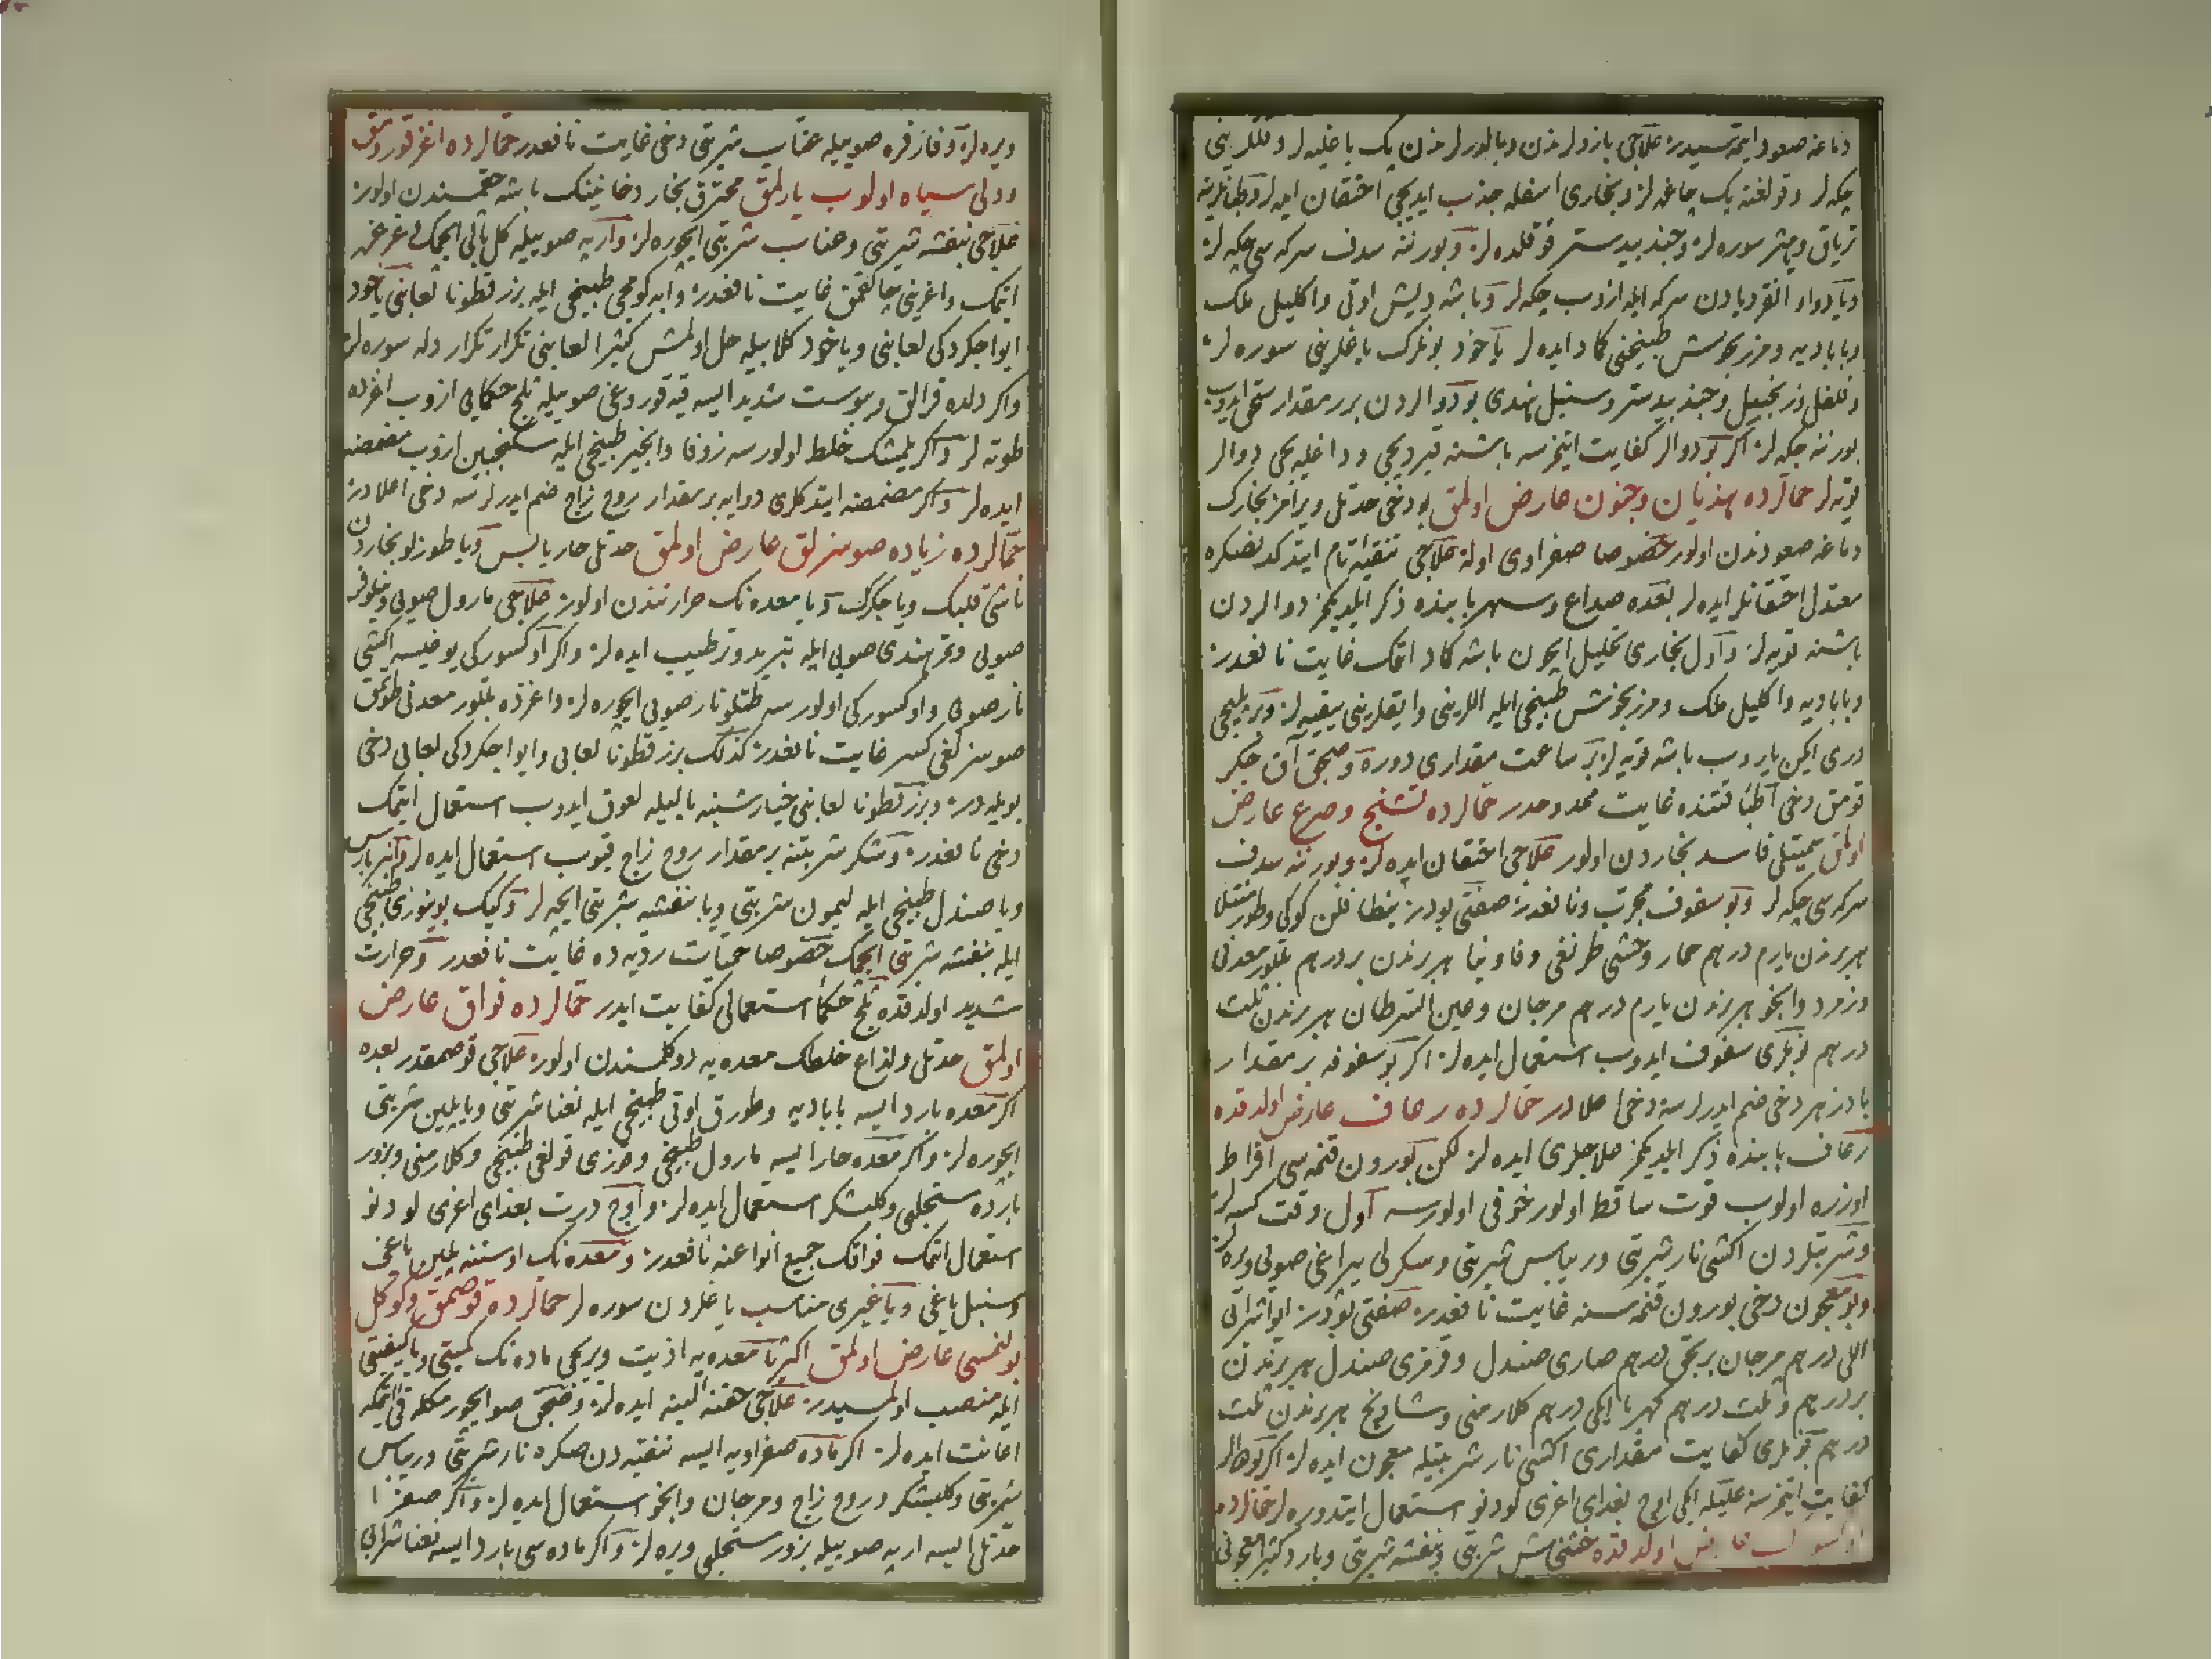 دماغه صعود ایتمسیدر علاجی بازولرندن وبالدرلرندن پك باغلیه لر وقللرینی
چكه لر وقولغنه پك چاغره لر وبخاری اسفله جذب ایدیجی احتقان ایده لر وطبانلرینه
تریاق ویشر سوره لر وجند بیدستر قوقلده لر وبورننه سدف سركه سی چكه لر
ویا دواء انقردیادن سركه ایله ازوب چكه لر وباشه دیش اوتی واكلیل ملك
وبابادیه ومرزنجوش طبیخنی كماد ایده لر یاخود بونلرك یاغلرینی سوره لر
وفلفل وزنجبیل وجند بیدستر وسنبل هندی بو دوالردن برر مقدار سحق ایدوب
بورننه چكه لر اكر بو دوالر كفایت ایتمزسه باشنه قیردیجی وداغلیجی دوالر
قویه لر حمالرده هذیان وجنون عارض اولمق بو دخی حدتلی ویرامز بخارك
دماغه صعودندن اولور خصوصا صفراوی اوله علاجی تنقیه تام ایتدكدنصكره
معتدل احتقانلر ایده لر بعده صداع وسهر بابنده ذكر ایلدیكمز دوالردن
باشنه قویه لر واول بخاری تحلیل ایچون باشه كماد اتمك غایت نافعدر
وبابادیه واكلیل ملك ومرزنجوش طبیخی ایله اللرینی وایقلرینی ییقیه لر وبر پلیجی
دری ایكن یاروب باشه قویه لر بر ساعت مقداری دوره وصیجق آق جكر
قومق دخی اطبا قتنده غایت ممدوحدر حمالرده تشنج وصرع عارض
اولمق سمیتلی فاسد بخاردن اولور علاجی احتقان ایده لر وبورننه سدف
سركه سی چكه لر وبو سفوف مجرب ونافعدر صفتی بودر
هر برندن یارم درهم حمار وحشی طرنغی وفاونیا هر برندن بر درهم بللور معدنی
وزمرد وانجو هر برندن یارم درهم مرجان وعین السرطان هر برندن ثلث
درهم بونلری سفوف ایدوب استعمال ایده لر اكر بو سفوفه بر مقدار
بادزهر دخی ضم ایدرلرسه دخی اعلادر حمالرده رعاف عارض اولدقده
رعاف بابنده ذكر ایلدیكمز علاجلری ایده لر لكن بورون قنمه سی افراط
اوزره اولوب قوت ساقط اولور خوفی اولورسه اول وقت كسه لر
وشربتلردن اكشی نار شربتی وریباس شربتی وسكرلی پیراغی صویی ویره لر
وبو معجون دخی بورون قنمه سنه غایت نافعدر صفتی بودر ایوا شرابی
اللی درهم مرجان بر بچق درهم صاری صندل وقرمزی صندل هر برندن
بر درهم وثلث درهم كهربا ایكی درهم كلارمنی وشادنج هر برندن ثلث
درهم بونلری كفایت مقداری اكشی نار شربتیله معجون ایده لر اكر بونلر
كفایت ایتمزسه علیله ایكی اوچ بغدای اغری لودنو استعمال ایتدوره لر حمالرده
عارض اولدقده خشخاش شربتی وبنفشه شربتی وبارد كثیرا معجونی
ویره لر وفارفره صوییله عناب شربتی دخی غایت نافعدر حمالرده اغز قوریمق
ودلی سیاه اولوب یارلمق محترق بخار دخانینك باشه چقمسندن اولور
علاجی بنفشه شربتی وعناب شربتی ایچوره لر وارپه صوییله كل بالی ایچمك لر غرغره
اتمك واغزینی چالقمق غایت نافعدر وابه كومجی طبیخی ایله بزرقطونا لعابنی یاخود
ایوا چكردكی لعابنی ویاخود كلابیله حل اولمش كثیرا لعابنی تكرار تكرار دله سوره لر
واكر دلده قرالق ویبوست شدید ایسه قیه قوروغی صوییله ثلج حكمایی ازوب اغزده
طوته لر واكر یلمشك خلط اولورسه زوفا وانجیر طبیخی ایله سكنجبین ازوب مضمضه
ایده لر واكر مضمضه ایتدكلری دوایه بر مقدار روح زاج ضم ایدرلرسه دخی اعلادر
حمالرده زیاده صوسزلق عارض اولمق حدتلی حار یابس ویا طوزلو بخاردن
ناشی قلبك ویا جكرك ویا معده نك حرارتندن اولور علاجی مارول صویی ونیلوفر
صویی وتمر هندی صویی ایله تبرید وترطیب ایده لر واكر اوكسوركی یوغیسه اكشی
نار صویی واوكسوركی اولورسه طتلو نار صویی ایچوره لر واغزده بللور معدنی طوتمق
صوسزلغی كسر غایت نافعدر كذلك بزرقطونا لعابی وایوا چكردكی لعابی دخی
بویله در وبزرقطونا لعابنی خیارشنبه بالیله لعوق ایدوب استعمال ایتمك
دخی نافعدر وشكر شربتنه بر مقدار روح زاج قیوب استعمال ایده لر وانبرباریس
ویا صندل طبیخی ایله لیمون شربتی ویا بنفشه شربتی ایچه لر وكیك بوینوزی طبیخی
ایله بنفشه شربتی ایچمك خصوصا حمیات ردیه ده غایت نافعدر وحرارت
شدید اولدقده ثلج حكما استعمالی كفایت ایدر حمالرده فواق عارض
اولمق حدتلی ولذاع خلطك معده یه دوكلمسندن اولور علاجی قوصمقدر بعده
اكر معده بارد ایسه بابادیه وطورق اوتی طبیخی ایله نعنا شربتی ویا پلین شربتی
ایچوره لر واكر معده حار ایسه مارول طبیخی وقوزی قولغی طبیخی وكلارمنی وبزور
بارده مستحلبی وكلبشكر استعمال ایده لر واوچ درت بغدای اغری لودنو
استعمال اتمك فواقك جمیع انواعنه نافعدر ومعده نك اوستنه پلین یاغی
وسنبل یاغی ویا غیری مناسب یاغلردن سوره لر حمالرده قوصمق وكوكل
بولنمسی عارض اولمق اكثریا معده یه اذیت ویریجی ماده نك كمیتی ویا كیفیتی
ایله منصب اولمسیدر علاجی حقنه لینه ایده لر وصیجق صو ایچورمكله قی ایتمكه
اعانت ایده لر اكر ماده صفراویه ایسه تنقیه دن صكره نار شربتی وریباس
شربتی وكلبشكر وروح زاج ومرجان وانجو استعمال ایده لر واكر صفرا
حدتلی ایسه ارپه صوییله بزور مستحلبی ویره لر واكر ماده سی بارد ایسه نعنا شرابی